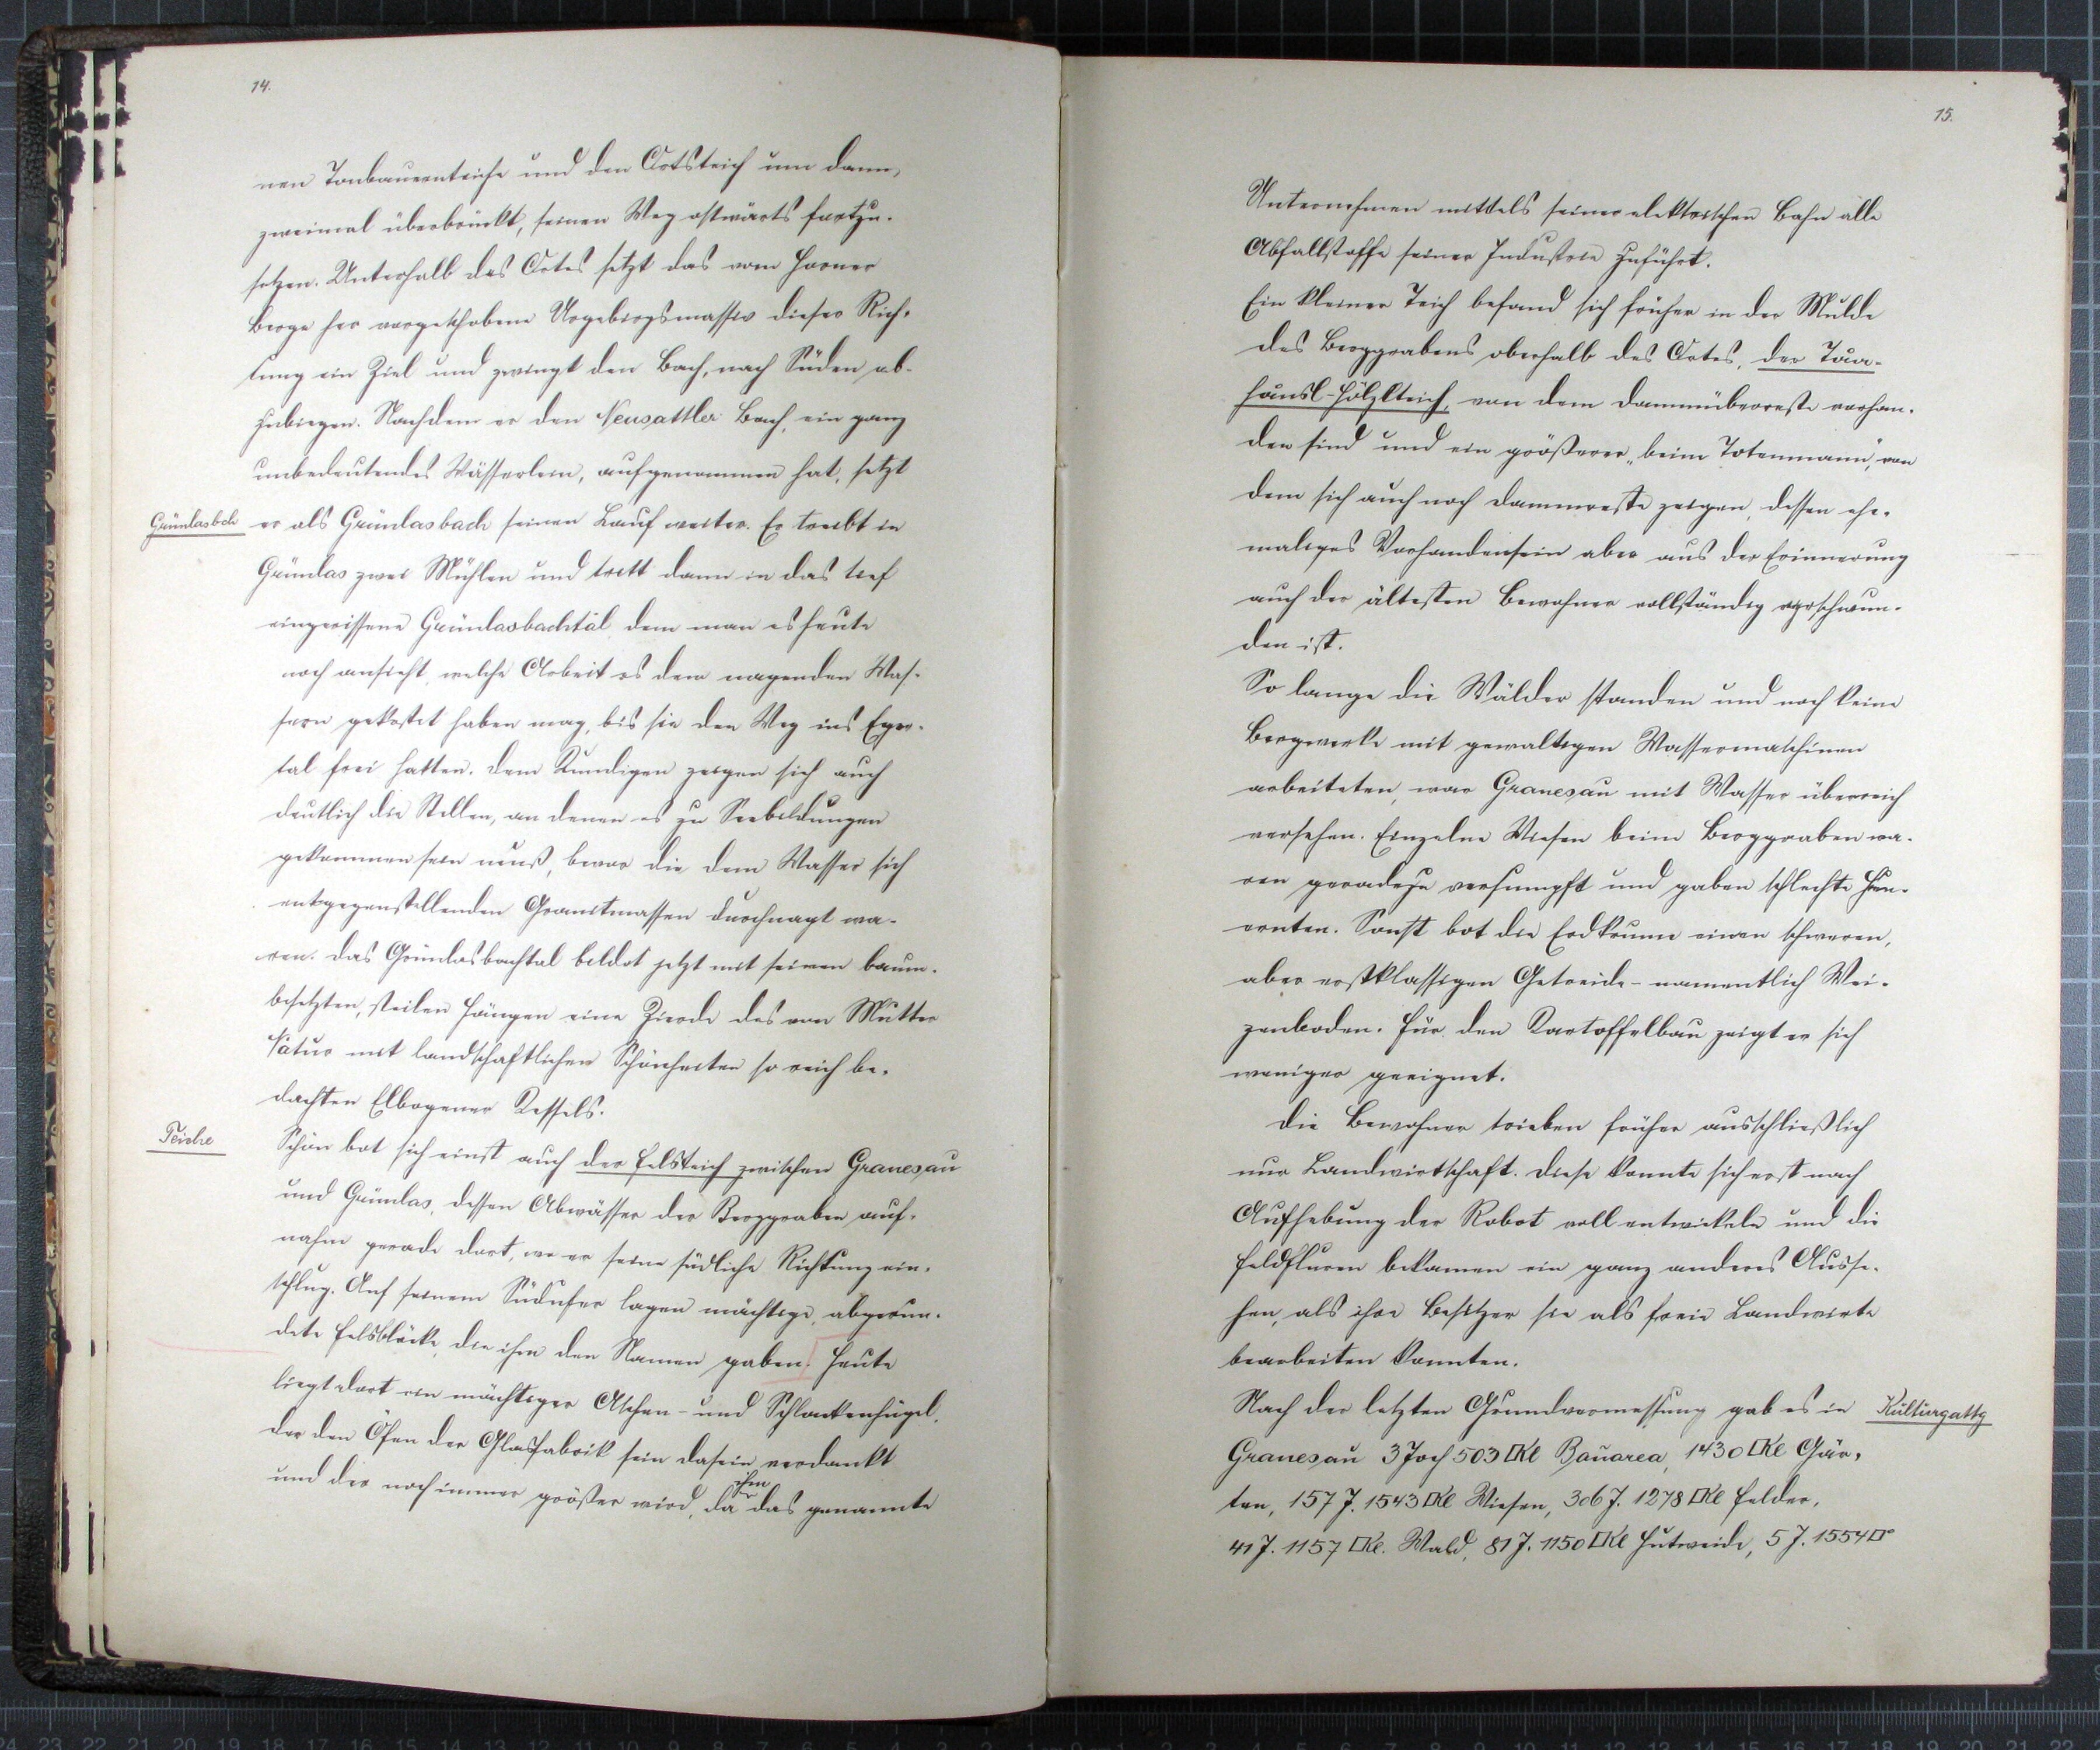 14.
nen Tonbauernteiche und den Ortsteich um dann,
zweimal überbrückt, seinen Weg ostwärts fortzu-
setzen. Unterhalb des Ortes setzt das vom Horner
Berge her vorgeschobene Urgebirgsmassiv dieser Rich-
tung ein Ziel und zwingt den Bach, nach Süden ab-
zubiegen. Nachdem er den Neusattler Bach, ein ganz
unbedeutendes Wässerlein, aufgenommen hat, setzt
Grünlasbch
er als Grünlasbach seinen Lauf weiter. Er treibt in
Grünlas zwei Mühlen und tritt dann in das tief
eingerissene Grünlasbachtal, dem man es heute
noch ansieht, welche Arbeit es dem nagenden Was-
sern gekostet haben mag, bis sie den Weg ins Eger-
tal frei hatten. Dem Kundigen zeigen sich auch
deutlich die Stellen, an denen es zu Seebildungen
gekommen sein muß, bevor die dem Wasser sich
entgegenstellenden Granitmassen durchnagt wa-
ren. Das Grünlasbachtal bildet jetzt mit seinen baum-
besetzten, steilen Hängen eine Zierde des von Mutter
Natur mit landschaftlichen Schönheiten so reich be-
dachten Elbogener Kessels.
Teiche
Schön bot sich einst auch der Felsteich zwischen Granesau
und Grünlas, dessen Abwässer der Berggraben auf-
nahm gerade dort, wo er seine südliche Richtung ein-
schlug. Auf seinem Südufer lagen mächtige, abgerun-
dete Felsblöcke, die ihm den Namen gaben. Heute
liegt dort ein mächtiger Aschen- und Schlackenhügel,
der den Öfen der Glasfabrik sein Dasein verdankt
und der noch immer größer wird, da ihm das genannte
15.
Unternehmen mittels seiner elektrischen Bahn alle
Abfallstoffe seiner Industrie zuführt.
Ein kleiner Teich befand sich früher in der Mulde
des Berggrabens oberhalb des Ortes, der
häusl-Hölzlteich, von dem Dammüberreste vorhan-
den sind und ein größerer „beim Totenmann“, von
dem sich auch noch Dammreste zeigen, dessen ehe-
maliges Vorhandensein aber aus der Erinnerung
auch der ältesten Bewohner vollständig verschwun-
den ist.
So lange die Wälder standen und noch keine
Bergwerke mit gewaltigen Wassermaschinen
arbeiteten, war Granesau mit Wasser überreich
versehen. Einzelne Wiesen beim Berggraben wa-
ren geradezu versumpft und gaben schlechte Heu-
ernten. Sonst bot die Erdkrume einen schweren,
aber erstklassigen Getreide- namentlich Wei-
zenboden. Für den Kartoffelbau zeigt er sich
weniger geeignet.
Die Bewohner trieben früher ausschließlich
nur Landwirtschaft. Diese konnte sich erst nach
Aufhebung der Robot voll entwickeln und die
Feldfluren bekamen ein ganz anderes Ausse-
hen, als ihre Besitzer sie als freie Landwirte
bearbeiten konnten.
Nach der letzten Grundvermessung gab es in
Kulturgattg
Granesau 3 Joch 503 □Kl Bauarea, 1430 □Kl Gär-
ten, 157 J. 1543 □Kl Wiesen, 306 J. 1278 □Kl Felder,
41 J. 1157 □Kl. Wald, 81 J. 1150 □Kl Hutweide, 5 J. 1554 □°